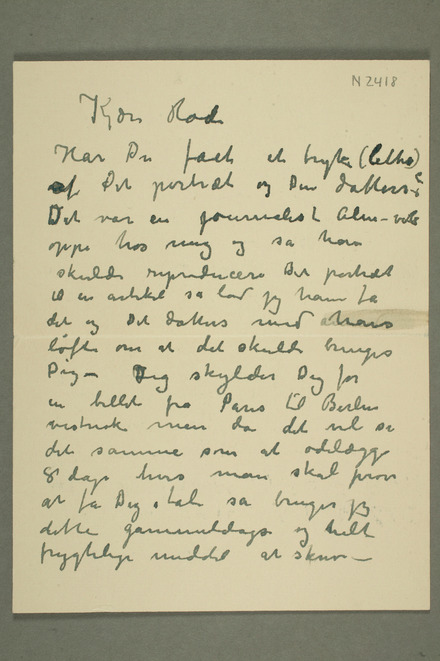 N 2418
Kjære Rode
Har Du faet et tryk (litho)
af Dit portræt og Din datters
Det var en journalist Alm-
oppe hos mig og sa han
skulde reproducere Dit portræt
i en artikel sa lod jeg ham fa
det og Dit datters mod hans
løfte om at det skulde bringes
Dig – Jeg skylder Dig for
en billet fra Paris til Berlin
men da det vil si
det samme som at ødelægge
8 dage hvis man skal prøve
at fa Dig i tale sa bruger jeg
dette gammeldags og helt
frygtelige middel at skrive –